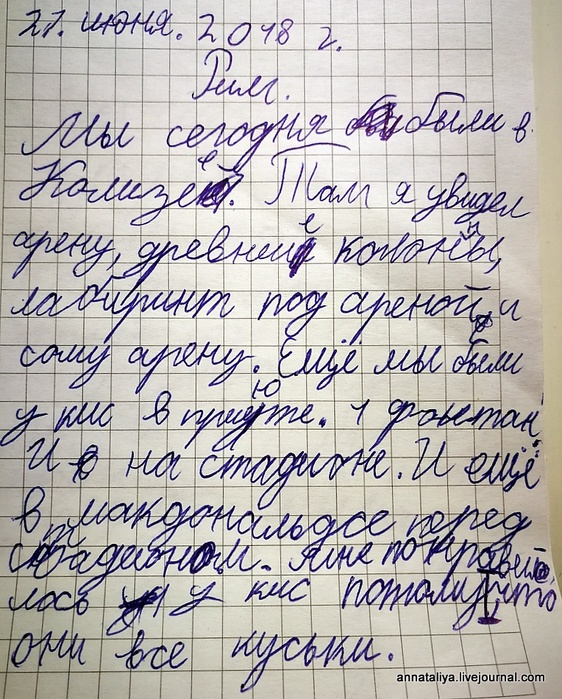 27. июня. 2018 г.
Рим.
Мы сегодня были в
Колизее. Там я увидел
арену, древнеие колонны,
лабиринт под ареной, и
сому арену. Ещё мы были
у кис в приюте. 1 фоьетан
И в на стадионе. И ещё
в макдональдсе перед
стадионом. мне понрави
лось у кис потому что
они все куськи.
annataliya.livejournal.com